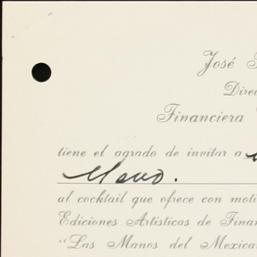 José
Direc
Financiera
tiene el agrado de invitar a
al cocktail que ofrece con moti
Ediciones Artísticas de Finan
"Las Manos del Mexica